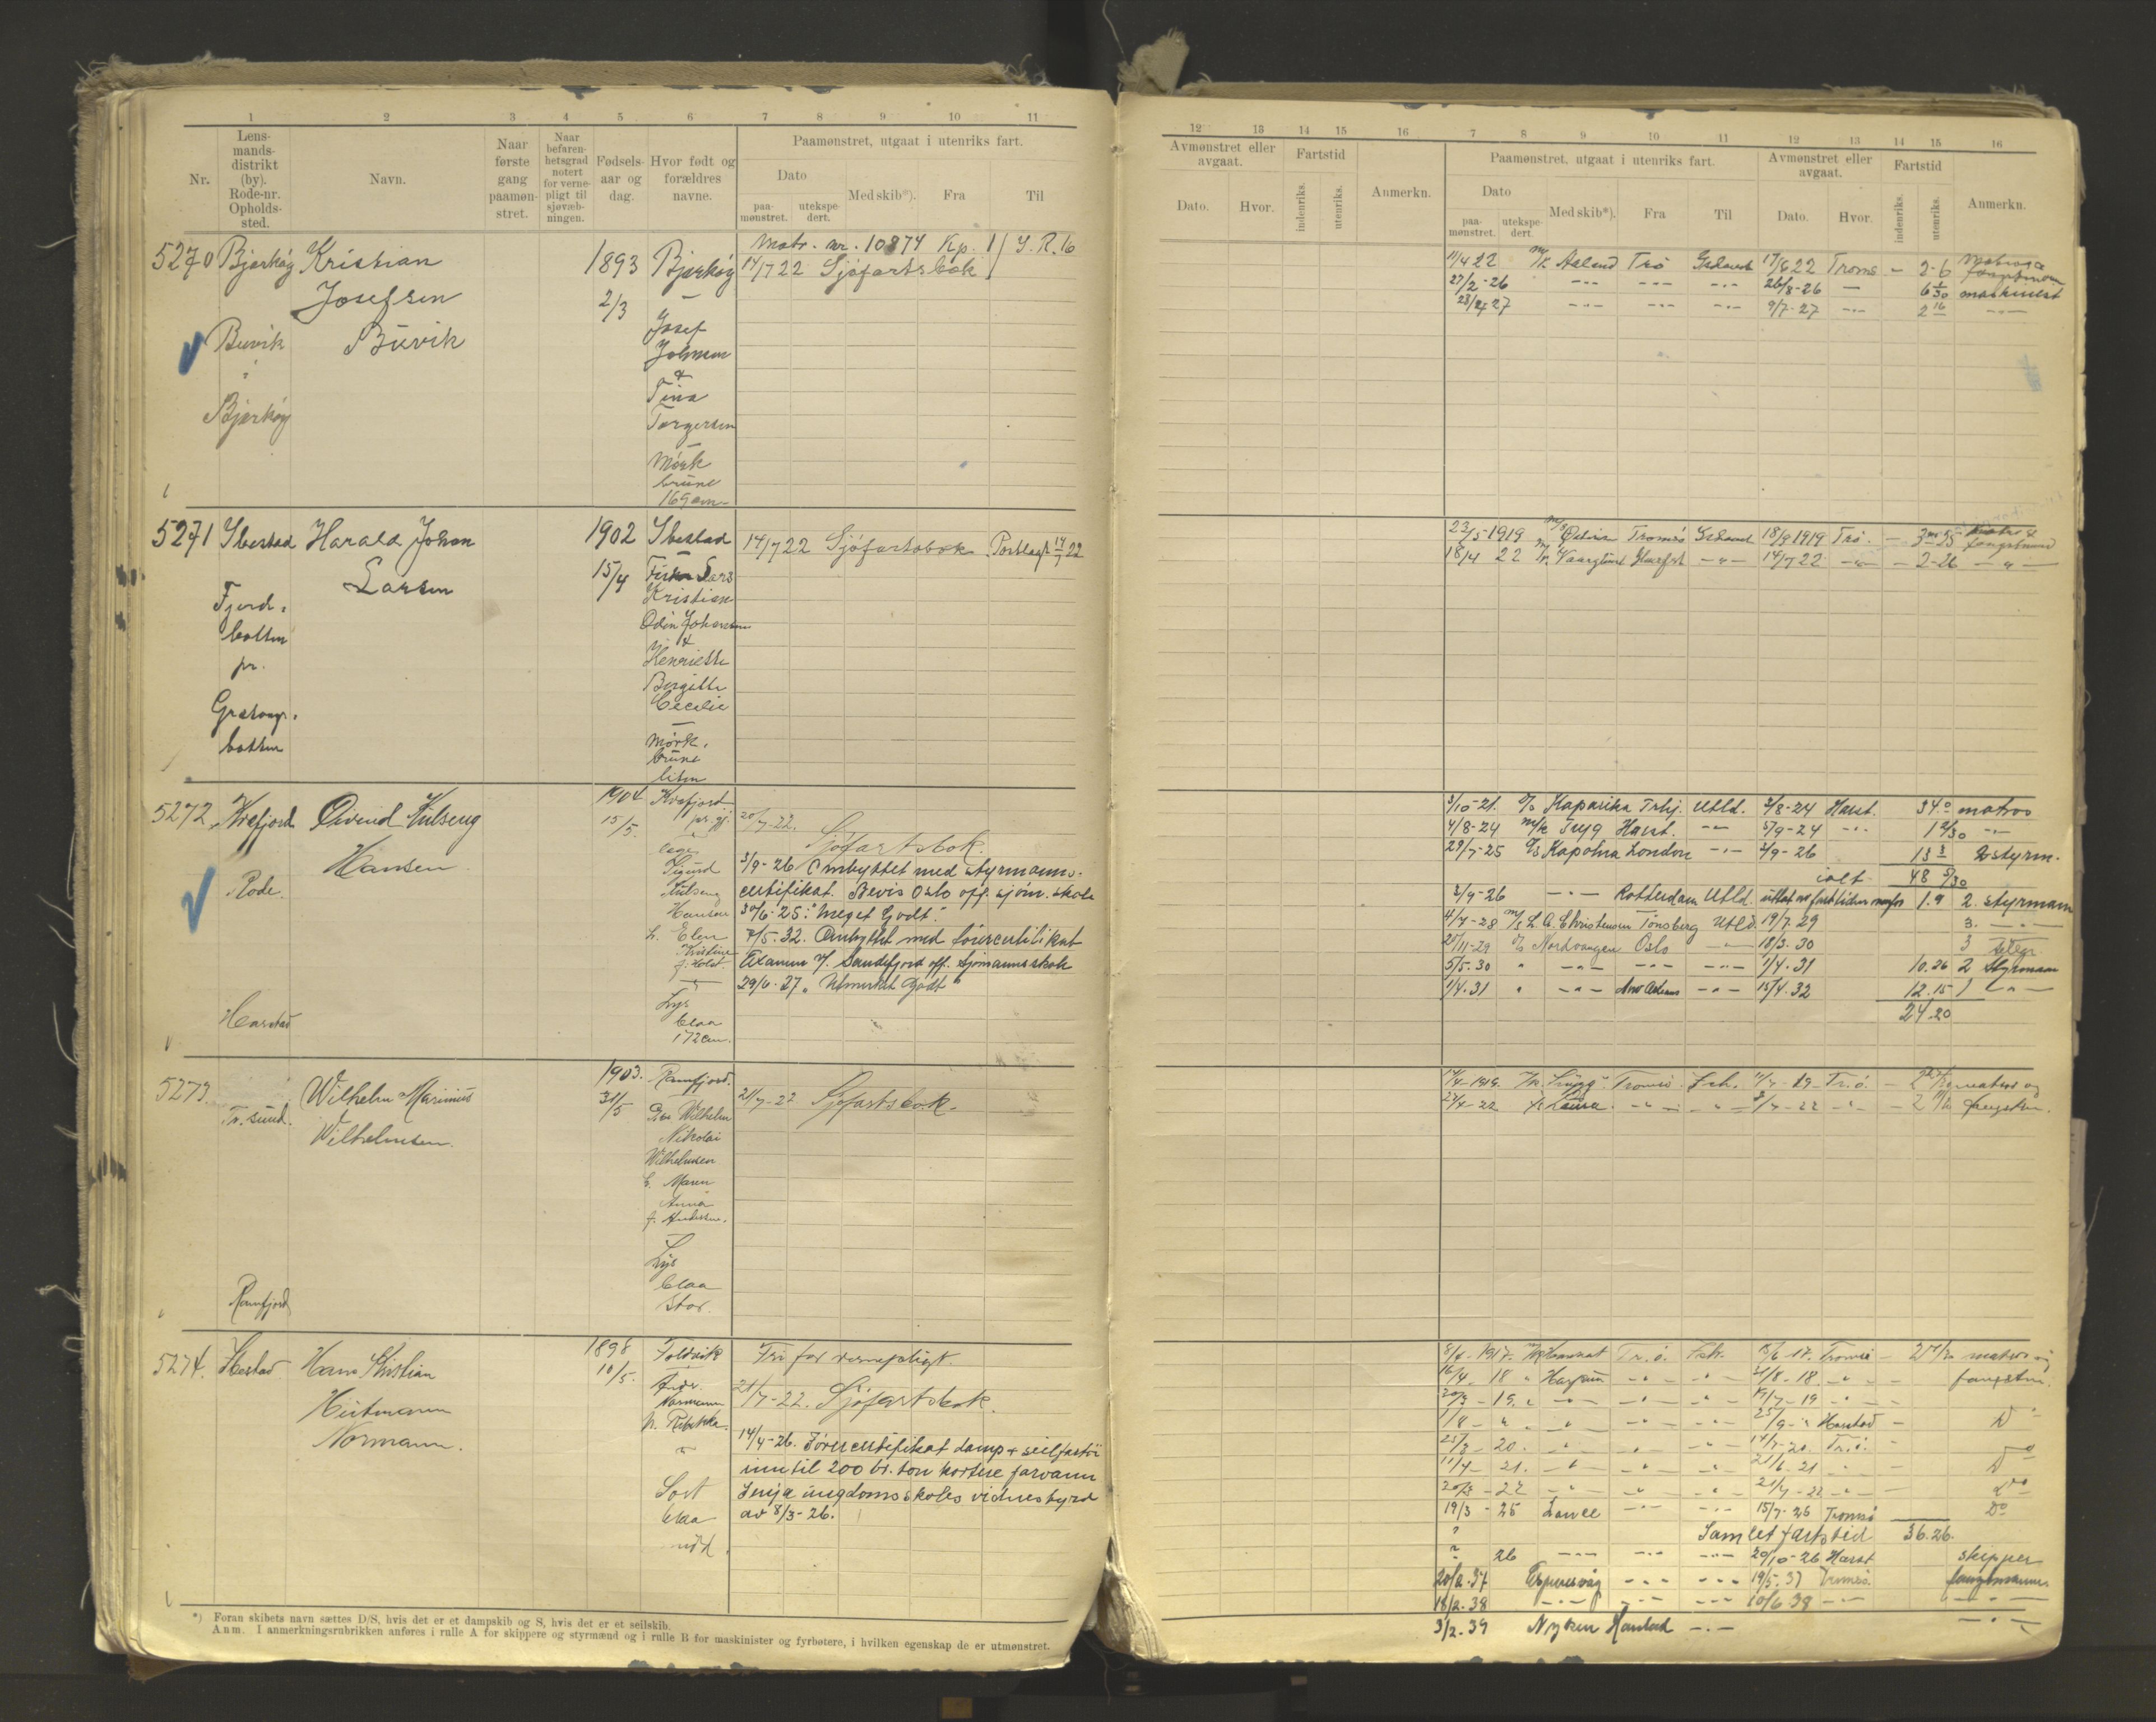 1 2 3 4 5 6 7 8 9 10 11
Nr. Lensmandsdistrikt (by). Rode-nr. Opholdssted. Navn. Naar første gang paamønstret. Naar befarenhetsgrad notert for vernepligt til sjøvæbningen. Fødselsaar og dag. Hvor født og forældres navne. Paamønstret, utgaat i utenriks fart.
Dato Med skib*). Fra Til
paamønstret. utekspedert.
5270 Bjarkøy Kristian 1893 Bjarkøy Matr. nr. 10874 Kp. 1 / Y. R. 16
14/7 22 Sjøfartsbok
Josefsen 2/3 Josef
Buvik Buvik Johnsen
&
Bjarkøy Tina
Torgersen
Mørk
brune
169 cm
5271 Ibestad Harald Johan 1902 Ibestad 14/7 22 Sjøfartsbok. Postlagt 14/7 22
Larsen 15/4 Lars
Fjord- Kristian
botten Odin Johansen
pr. &
Henriette
Gratangs- Bergitte
botten Cecilie
Mørk,
brune
liten
5272 Kvefjord Oivind Hulseng 1904 Kvefjord 20/7-22.
Hansen 15/5. Sjøfartsbok.
Rode. Sigurd 3/9-26 Ombyttet med styrmanns-
Hulseng certifikat. Bevis Oslo off. sjøm. skole
Hansen 30/6-25: "Meget Godt".
h. Elen 7/5.32. Ombyttet med førercertifikat
Kristine Examen v/ Sandefjord off. sjømannsskole
f. Holst. 29/6-27 "Utmerket Godt"
Harstad Lys
blaa
172 cm.
5273. Tr.sund. Wilhelm Marinius 1903. Ramfjord. 21/7-22 Sjøfartsbok.
Wilhelmsen. 31/5 Wilhelm
Nikolai
Wilhelmsen
h. Maren
Anna
f. Andersen.
Lys
blaa
Ramfjord stor.
5274. Ibestad Hans Kristian 1898 Foldvik Fri for vernepligt
Hartmann 10/5. Andr. 21/7-22. Sjøfartsbok.
Normann. Normann
h. Rebekka 14/4-26. Førercertifikat damp & seilfartøi
inntil 200 br. ton kortere farvann
Sort Senja ungdomsskoles vidnesbyrd
blaa av 8/3-26.
*) Foran skibets navn sættes D/S, hvis det er et dampskib og S, hvis det er et seilskib.
Anm. I anmerkningsrubrikken anføres i rulle A for skippere og styrmænd og i rulle B for maskinister og fyrbøtere, i hvilken egenskap de er utmønstret.
12 13 14 15 16 7 8 9 10 11 12 13 14 15 16
Avmønstret eller avgaat. Fartstid Anmerkn. Paamønstret, utgaat i utenriks fart. Avmønstret eller avgaat. Fartstid Anmerkn.
Dato. Hvor. indenriks. utenriks. Dato Med skib*). Fra Til Dato. Hvor. indenriks. utenriks.
paamønstret. utekspedert.
11/4 22 m/k Aaland Trø Ishavet 17/6 22 Troms - 2-6 Matros & fangstmann
27/2-26 -"- -"- -"- 26/8-26 - 6 maskinist
23/4 27 -"- -"- -"- 9/7-27 -"- 2 16 -"-
23/5-1919 Odin Tromsø Ishavet 18/9 1919 Trø. - 3 m 25 matr & fangstmand
18/4 22 Vaarglimt Hamrfst -"- 14/7 22 -"- - 2-26 -"-
3/10-21. Kaparika Trhj. Utld. 3/8-24 Harst. 34 0 matros
4/8-24 m/k Tryg Harst. -"- 5/9-24 -"- 1 2/30 -"-
29/7-25 Kapolna London -"- 2/9-26 13 3 2 styrm.
ialt 48 5/30
3/9-26 -"- Rotterdam Utld. 1.9 2. styrmann
4/7-28 m/s L. A. Christensen Tønsberg Utld. 19/7.29 3. -"-
20/11-29 Nordvangen Oslo -"- 18/3.30 3
5/5.30 " -"- -"- -"- 1/4.31 10.26 2 Styrmann
1/4.31 " -"- -"- 15/4.32 12.15 1 -"-
24.20
14/4-1919. Tromsø Ish. 11/7-19 Tr.ø. - 2 matros og
22/4-22 Laura -"- -"- 8/7-22 -"- - 2 fangstm.
8/6-1917. Tr.ø. Ish. 13/6-17. Tromsø - matros og
16/4-18 " Harpun -"- -"- 21/8-18. -"- - fangstm.
20/3-19. " -"- -"- -"- 19/7-19 -"-
1/8-" " -"- -"- -"- 25/9-" Harstad - Do
25/3-20. -"- -"- -"- 14/7-20. Tr.ø.
11/4-21. -"- -"- -"- 21/6.21 -"- Do
20/3-22 -"- -"- -"- 21/7-22 -"- - Do
19/3-25 -"- -"- 15/7-25 Tromsø Do
? Samlet fartstid 36.26.
? 26 -"- -"- -"- 20/10-26 Harst skipper
20/2.37 -"- -"- 19/5.37 Tromsø. fangstmann.
18/2.38 -"- -"- -"- 10/6 38 -"- -"-
3/2.39 Nyken Harstad -"- -"-